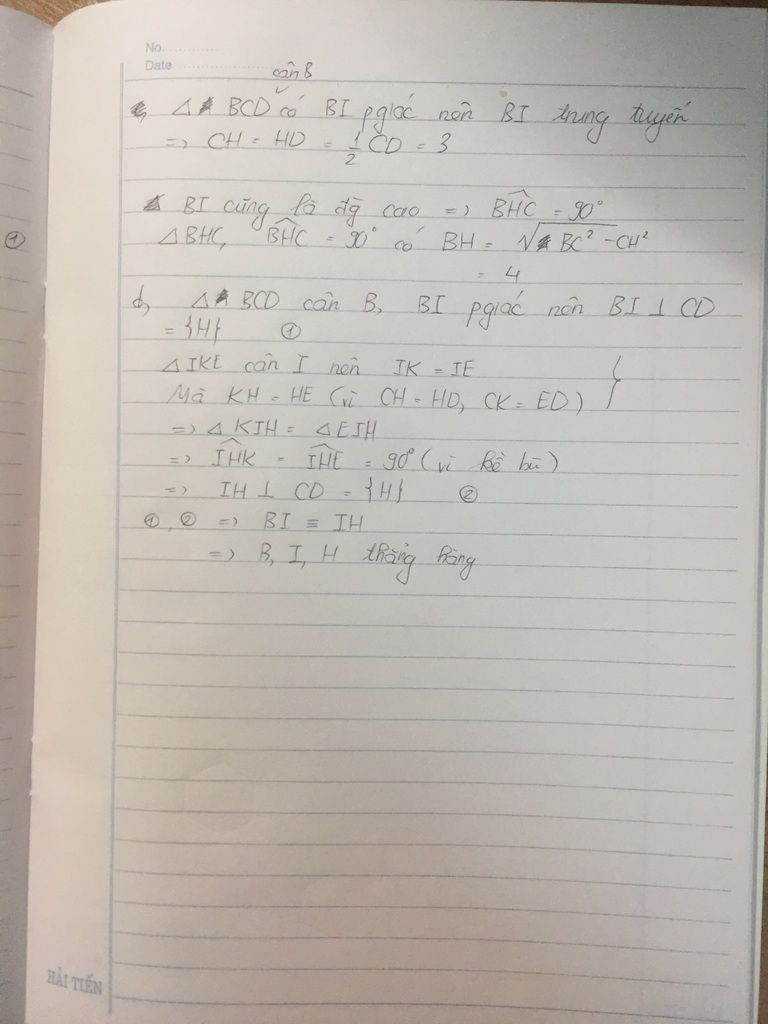 No.
Date
cân B
△ BCD có BI pgiác nên BI trung tuyến
=> CH = HD = 1/2 CD = 3
BI cũng là đg cao => BHC = 90°
①
△BHC, BHC = 90° có BH = √BC² - CH²
= 4
d, △ BCD cân B, BI pgiác nên BI ⊥ CD
= {H} ①
△IKE cân I nên IK = IE
Mà KH = HE (vì CH = HD, CK = ED) }
=> △ KIH = △EIH
=> IHK = IHE = 90° (vì kề bù)
=> IH ⊥ CD = {H} ②
①, ② => BI ≡ IH
=> B, I, H thẳng hàng
HẢI TIẾN